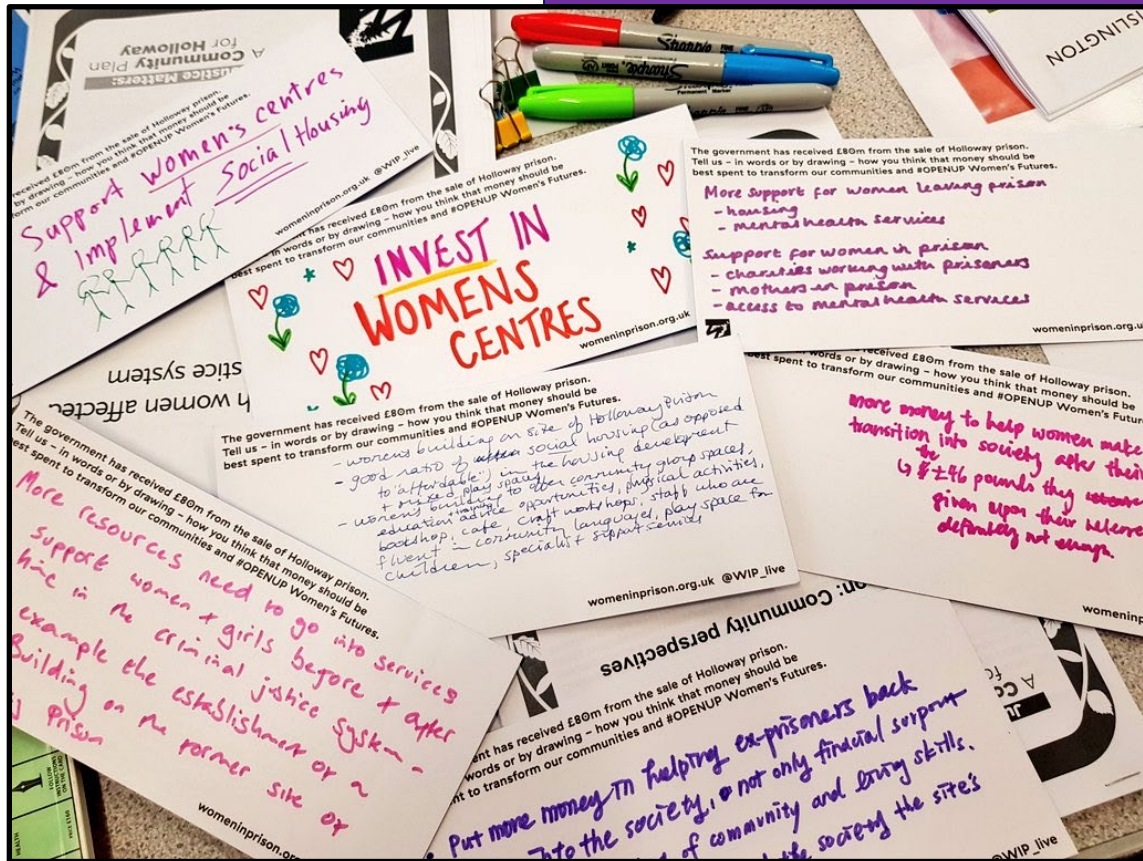 A Community Plan
for Holloway
Justice Matters:
received £80m from the sale of Holloway prison.
by drawing – how you think that money should be
form our communities and #OPENUP Women's Futures.
Support women's centres
& Implement Social Housing
womeninprison.org.uk @WIP_live
Sharpie
Permanent Marker
ISLINGTON
ent has received £80m from the sale of Holloway prison.
in words or by drawing – how you think that money should be
best spent to transform our communities and #OPENUP Women's Futures.
INVEST IN
WOMENS
CENTRES
womeninprison.org.uk
The government has received £80m from the sale of Holloway prison.
Tell us – in words or by drawing – how you think that money should be
best spent to transform our communities and #OPENUP Women's Futures.
More support for women leaving prison
- housing
- mental health services
Support for women in prison
- charities working with prisoners
- mothers in prison
- access to mental health services
womeninprison.org.u
stice system
h women affected
The government has received £80m from the sale of Holloway prison.
Tell us – in words or by drawing – how you think that money should be
best spent to transform our communities and #OPENUP Women's Futures.
- womens building on site of Holloway Prison
- good ratio of social housing (as opposed
to "affordable") in the housing development
+ mixed play spaces
- womens building to offer community group spaces,
education + training advice opportunities, physical activities,
bookshop, cafe, craft workshops, staff who are
fluent in community languages, play space for
children, specialist support services
womeninprison.org.uk @WIP_live
received £80m from the sale of Holloway prison.
words or by drawing – how you think that money should be
best spent to transform our communities and #OPENUP Women's Futu
more money to help women make
transition into society after their
the
↳ ± 46 pounds they
given upon their release
definitely not enough.
womeninp
The government has received £80m from the sale of Holloway prison.
Tell us – in words or by drawing – how you think that money should be
best spent to transform our communities and #OPENUP Women's Futures.
More resources need to go into services
support women + girls before + after
time in the criminal justice system -
example the establishment of a
Building on the former site of
prison
womeninprison.org
on: Community perspectives
ent has received £80m from the sale of Holloway prison.
words or by drawing – how you think that money should be
nt to transform our communities and #OPENUP Women's Futures.
Put more money in helping ex-prisoners back
into the society, not only financial support
of community and living skills.
the society the site's
@WIP_live
FOLLOW
INSTRUCTIONS
ON THE CARD
HEALTH